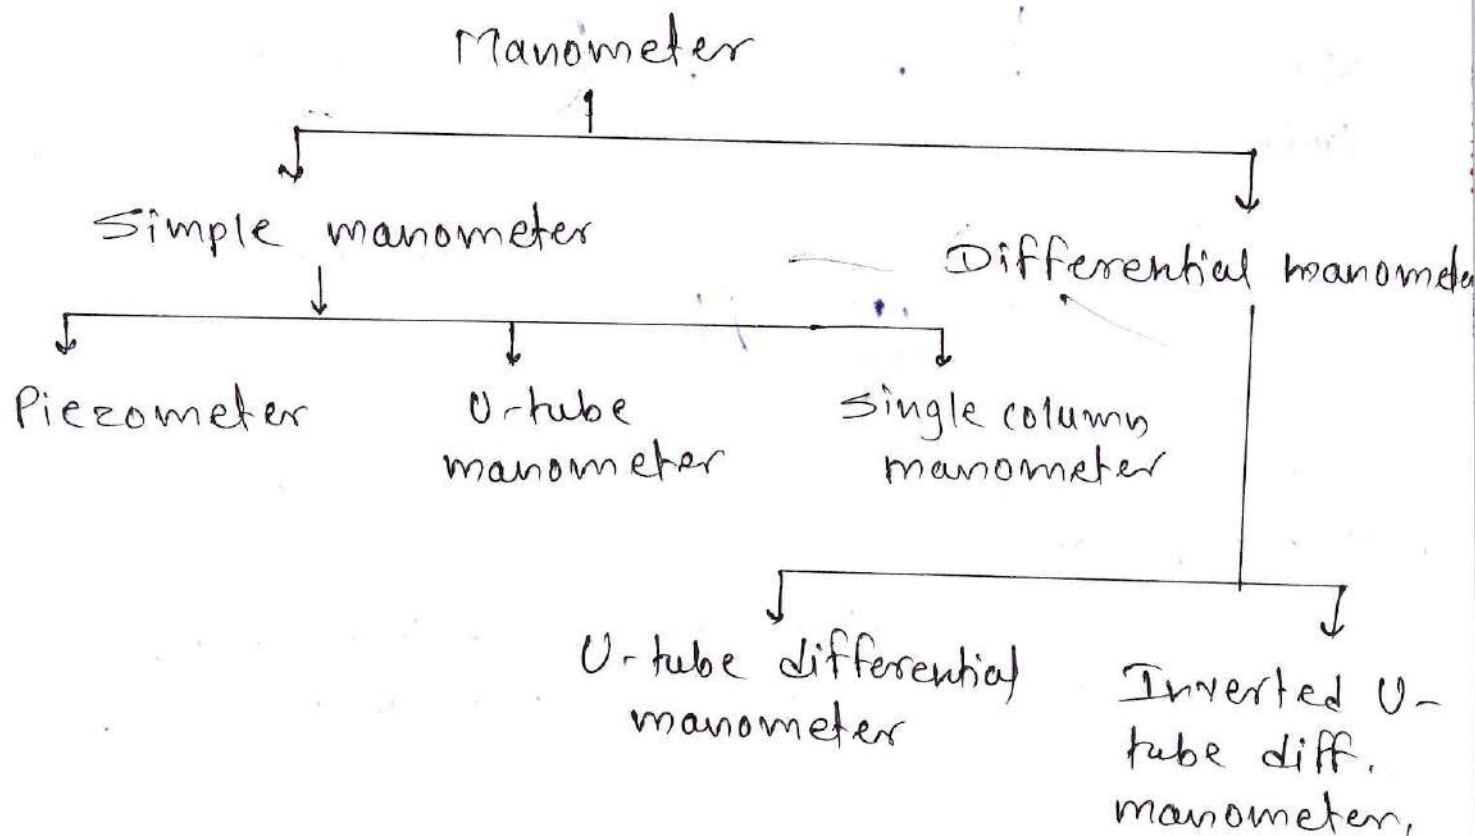 Manometer
Simple manometer
Differential manomete
Piezometer
U-tube
manometer
Single column
manometer
U-tube differential
manometer
Inverted U-
tube diff.
manometer.